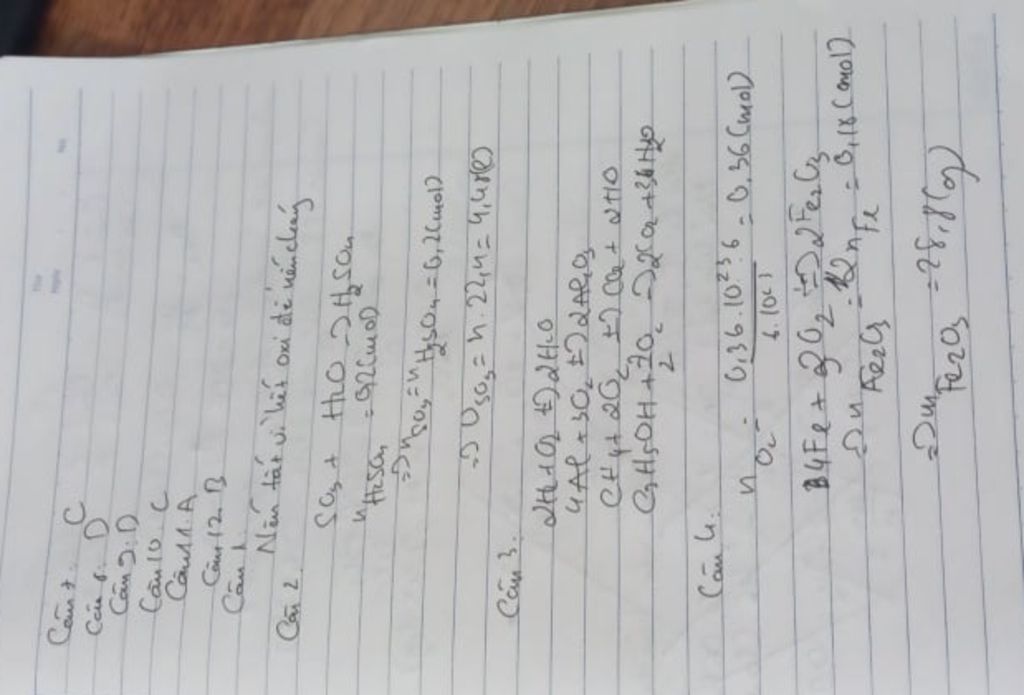 Câu 7: C
Câu 8: D
Câu 9: D
Câu 10: C
Câu 11: A
Câu 12: B
Câu 1
Nến tắt vì hết oxi để nến cháy
Câu 2
SO3 + H2O -> H2SO4
nH2SO4 = 0,2(mol)
=> nSO3 = nH2SO4 = 0,2(mol)
=> VSO3 = n. 22,4 = 4,48(l)
Câu 3:
2H2 + O2 t-> 2H2O
4Al + 3O2 t-> 2Al2O3
CH4 + 2O2 t-> CO2 + 2H2O
C2H5OH + O2 -> 2CO2 + 3H2O
Câu 4:
nO2 = 0,36.10^23.6 / 6.10^23 = 0,36(mol)
4Fe + 3O2 t-> 2Fe2O3
=> nFe2O3 = nFe = 0,18(mol)
=> mFe2O3 = 28,8(g)